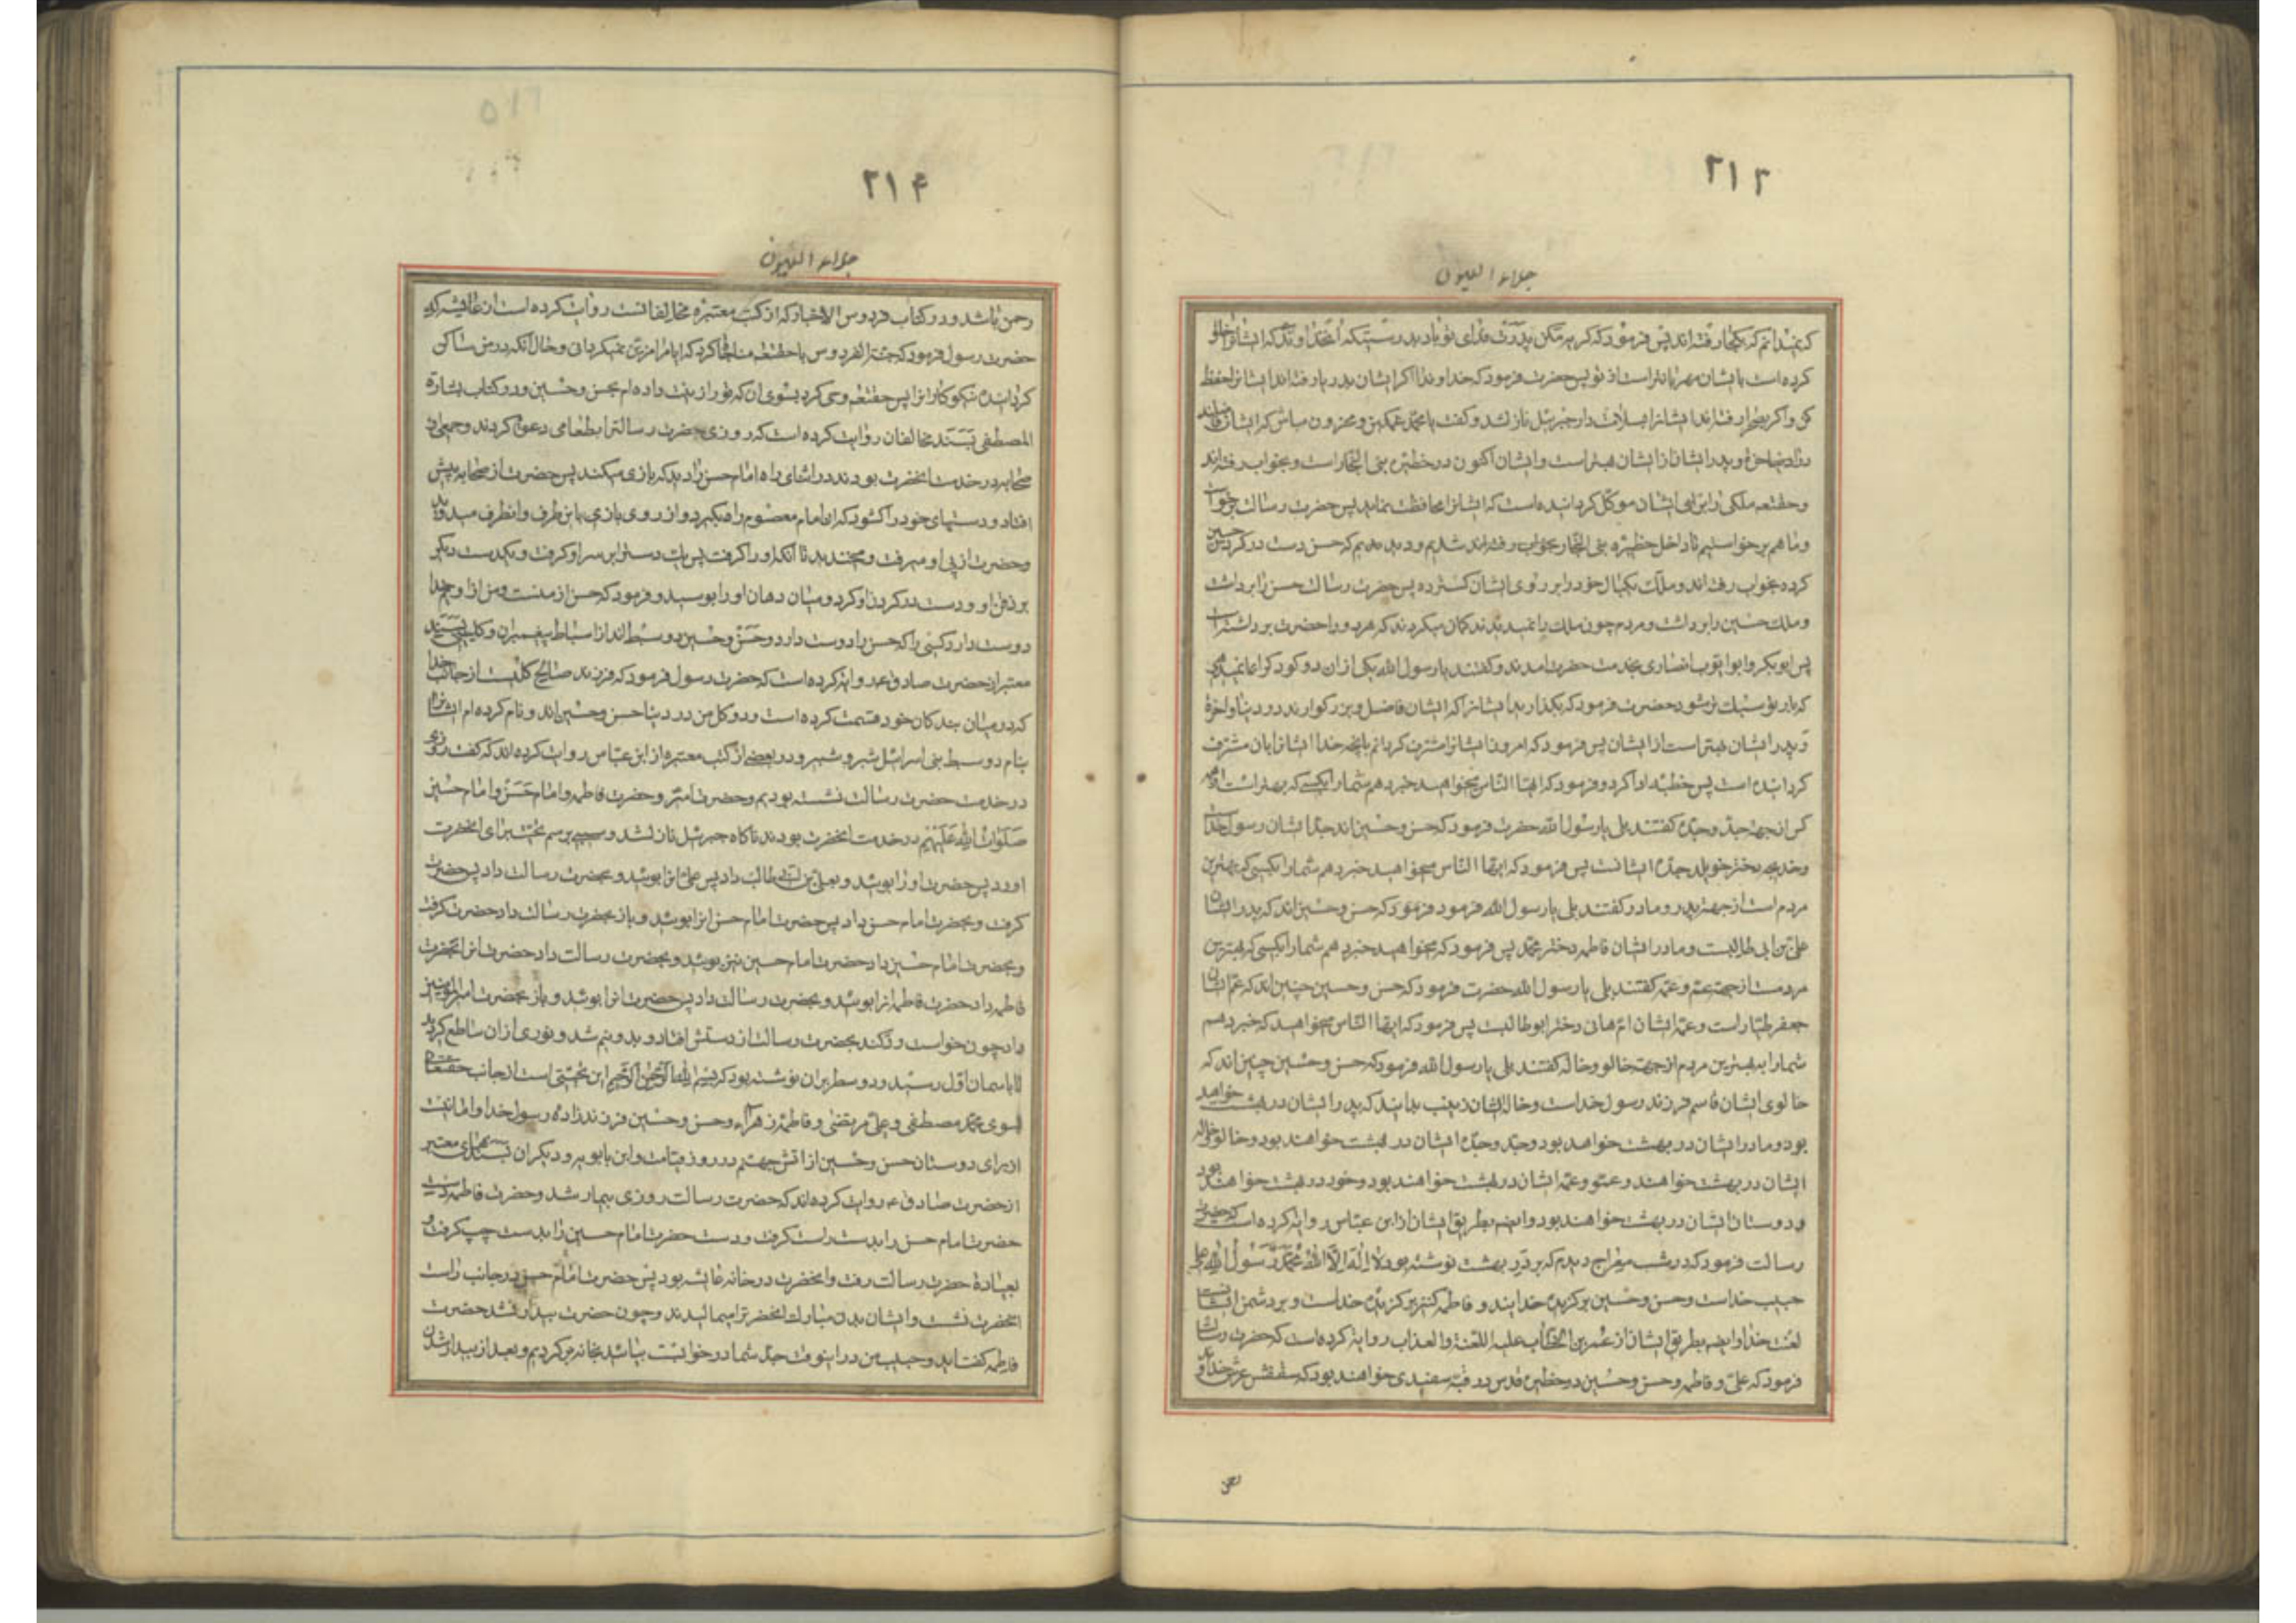 ۲۱۳
جلاء العیون
که نمیدانم که بکجا رفته‌اند پس فرمود که گریه مکن پدرت فدای تو باد بدرستیکه آنخداوندیکه ایشانرا خلق
کرده است بایشان مهربانتر است از تو پس حضرت فرمود که خداوندا اگر ایشان بدریا رفته‌اند ایشانرا حفظ
کن و اگر بصحرا رفته‌اند ایشانرا بسلامت دار جبرئیل نازل شد و گفت یا محمد غمگین و محزون مباش که ایشان فاضلند
در دنیا و اخرة و پدر ایشان از ایشان بهتر است و ایشان اکنون در حظیره بنی النجار است و بخواب رفته‌اند
و حقتعه ملکی را بایشان موکل گردانیده است که ایشانرا محافظت نماید پس حضرت رسالت برخواست
و ما هم برخواستیم تا داخل حظیره بنی النجار شدیم و دیدیم که حسن دست در گردن حسین
کرده بخواب رفته‌اند و ملک یکبال خود را بر روی ایشان گسترده پس حضرت رسالت حسن را برداشت
و ملک حسین را برداشت و مردم چون ملک را نمیدیدند گمان میکردند که هر دو را حضرت برداشته‌است
پس ابو بکر و ابو ایوب انصاری بخدمت حضرت امدند و گفتند یا رسول الله یکی از ان دو کودک را بما نمیدهی
که بار تو سبک تر شود حضرت فرمود که بگذارید ایشانرا که ایشان فاضل و بزرگوارند در دنیا و اخرة
و پدر ایشان بهتر است از ایشان پس فرمود که امروز ایشانرا مشرف گردانم بانچه خدا ایشانرا بان مشرف
گردانیده است پس خطبه ادا کرد و فرمود که ایها الناس میخواهید خبر دهم شما را بکسی که بهتر است از همه
کس از جهة جد و جده گفتند بلی یا رسول الله حضرت فرمود که حسن و حسین اند جد ایشان رسول خداست
و خدیجه دختر خویلد جده ایشانست پس فرمود که ایها الناس میخواهید خبر دهم شما را بکسی که بهترین
مردم است از جهة پدر و مادر گفتند بلی یا رسول الله فرمود فرمود که حسن و حسین اند که پدر ایشان
علی بن ابی طالبست و مادر ایشان فاطمه دختر محمد پس فرمود که میخواهید خبر دهم شما را بکسی که بهترین
مردمست از جهة عم و عمه گفتند بلی یا رسول الله حضرت فرمود که حسن و حسین چنین اند که عم ایشان
جعفر طیار است و عمه ایشان ام هانی دختر ابو طالبست پس فرمود که ایها الناس میخواهید که خبر دهم
شما را به بهترین مردم از جهة خالو و خاله گفتند بلی یا رسول الله فرمود که حسن و حسین چنین اند که
خالوی ایشان قاسم فرزند رسول خداست و خاله ایشان زینب بدانید که پدر ایشان در بهشت خواهد
بود و مادر ایشان در بهشت خواهد بود و جد و جده ایشان در بهشت خواهند بود و خالو و خاله
ایشان در بهشت خواهند و عمو و عمه ایشان در بهشت خواهند بود و خود در بهشت خواهند بود
و دوستان ایشان در بهشت خواهند بود و ایضه بطریق ایشان از ابن عباس روایة کرده است که حضرت
رسالت فرمود که در شب معراج دیدم که بر در بهشت نوشته بود لا اله الا الله محمد رسول الله علی
حبیب خداست و حسن و حسین برگزیده خدایند و فاطمه کنیز برگزیده خداست و بر دشمن ایشانست
لعنت خدا و ایضه بطریق ایشان از عمر بن الخطاب علیه اللعنة و العذاب روایة کرده است که حضرت رسالت
فرمود که علی و فاطمه و حسن و حسین در حظیره قدس در قبه سفیدی خواهند بود که سقفش عرش خداوند
رحمن
۲۱۴
جلاء العیون
رحمن باشد و در کتاب فردوس الاخبار که از کتب معتبره مخالفانست روایت کرده است از عایشه که
حضرت رسول فرمود که جنة الفردوس با حقتعه مناجا کرد که ایا مرا مزین نمیگردانی و حال آنکه در من ساکن
گردانیده نیکوکارانرا پس حقتعه وحی کرد بسوی ان که تو را زینت داده‌ام بحسن و حسین و در کتاب بشارة
المصطفی بسند مخالفان روایت کرده است که روزی حضرت رسالترا بطعامی دعوت کردند و جمعی از
صحابه در خدمت انحضرت بودند در اثنای راه امام حسن را دید که بازی میکند پس حضرت از صحابه پیش
افتاد و دستهای خود را گشود که ان امام معصوم را بگیرد و از روی بازی باین طرف و انطرف میدوید
و حضرت از پی او میرفت و میخندید تا آنکه او را گرفت پس یک دست را بر سر او گرفت و یکدست دیگر
بر ذقن او و دست در گردن او کرد و میان دهان او را بوسید و فرمود که حسن از منست و من از او و خدا
دوست دارد کسی را که حسن را دوست دارد و حسن و حسین دو سبط‌اند از اسباط پیغمبران و کلینی بسند
معتبر از حضرت صادق ع روایة کرده است که حضرت رسول فرمود که فرزند صالح گلیست از جانب خدا
که در میان بندگان خود قسمت کرده است و دو گل من در دنیا حسن و حسین اند و نام کرده‌ام ایشانرا
بنام دو سبط بنی اسرائیل شبر و شبیر و در بعضی از کتب معتبره از ابن عباس روایت کرده‌اند که گفت روزی
در خدمت حضرت رسالت نشسته بودیم و حضرت امیر و حضرت فاطمه و امام حسن و امام حسین
صلوات الله علیهم در خدمت انحضرت بودند ناگاه جبرئیل نازل شد و سیبی برسم تحفه برای انحضرت
اورد پس حضرت او را بوئید و بعلی بن ابی طالب داد پس علی انرا بوئید و بحضرت رسالت داد پس حضرت
گرفت و بحضرت امام حسن داد پس حضرت امام حسن انرا بوئید و باز بحضرت رسالت داد حضرت گرفت
و بحضرت امام حسین داد حضرت امام حسین نیز بوئید و بحضرت رسالت داد حضرت انرا بحضرت
فاطمه داد حضرت فاطمه انرا بوئید و بحضرت رسالت داد پس حضرت انرا بوئید و باز بحضرت امیرالمؤمنین
داد چون خواست رد کند بحضرت رسالت از دستش افتاد و بدو نیم شد و نوری از ان ساطع گردید
تا باسمان اول رسید و دو سطر بران نوشته بود که بسم الله الرحمن الرحیم این تحیتی است از جانب حقتعالی
بسوی محمد مصطفی و علی مرتضی و فاطمه زهراء و حسن و حسین فرزندزاده رسول خدا و امانست
از برای دوستان حسن و حسین از اتش جهنم در روز قیامت و ابن بابویه و دیگران بسندهای معتبر
از حضرت صادق ع روایت کرده‌اند که حضرت رسالت روزی بیمار شد و حضرت فاطمه دست
حضرت امام حسن را بدست راست گرفت و دست حضرت امام حسین را بدست چپ گرفت و
بعیادة حضرت رسالت رفت و انحضرت در خانه عایشه بود پس حضرت امام حسن در جانب راست
انحضرت نشست و ایشان بدن مبارک انحضرترا میمالیدند و چون حضرت بیدار نشد حضرت
فاطمه گفت ای دو حبیب من در اینوقت جد شما در خوابست بیائید بخانه برگردیم و بعد از بیدار شدن